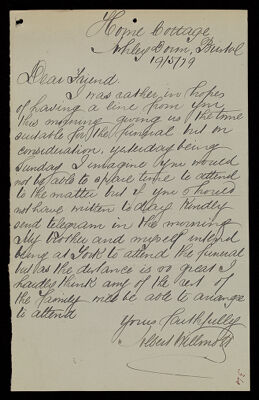 Home Cottage,
Ashley Down, Bristol
19/5/79
Dear Friend.
I was rather in hopes
of having a line from you
this morning giving us the time
suitable for the funeral but on
consideration, yesterday being
Sunday I imagine you would
not be able to spare time to attend
to the matter but if you should
not have written to day kindly
send telegram in the morning
My Brother and myself intend
being at York to attend the funeral
but as the distance is so great I
hardly think any of the rest of
the family will be able to arrange
to attend
Yours Faithfully
Albert